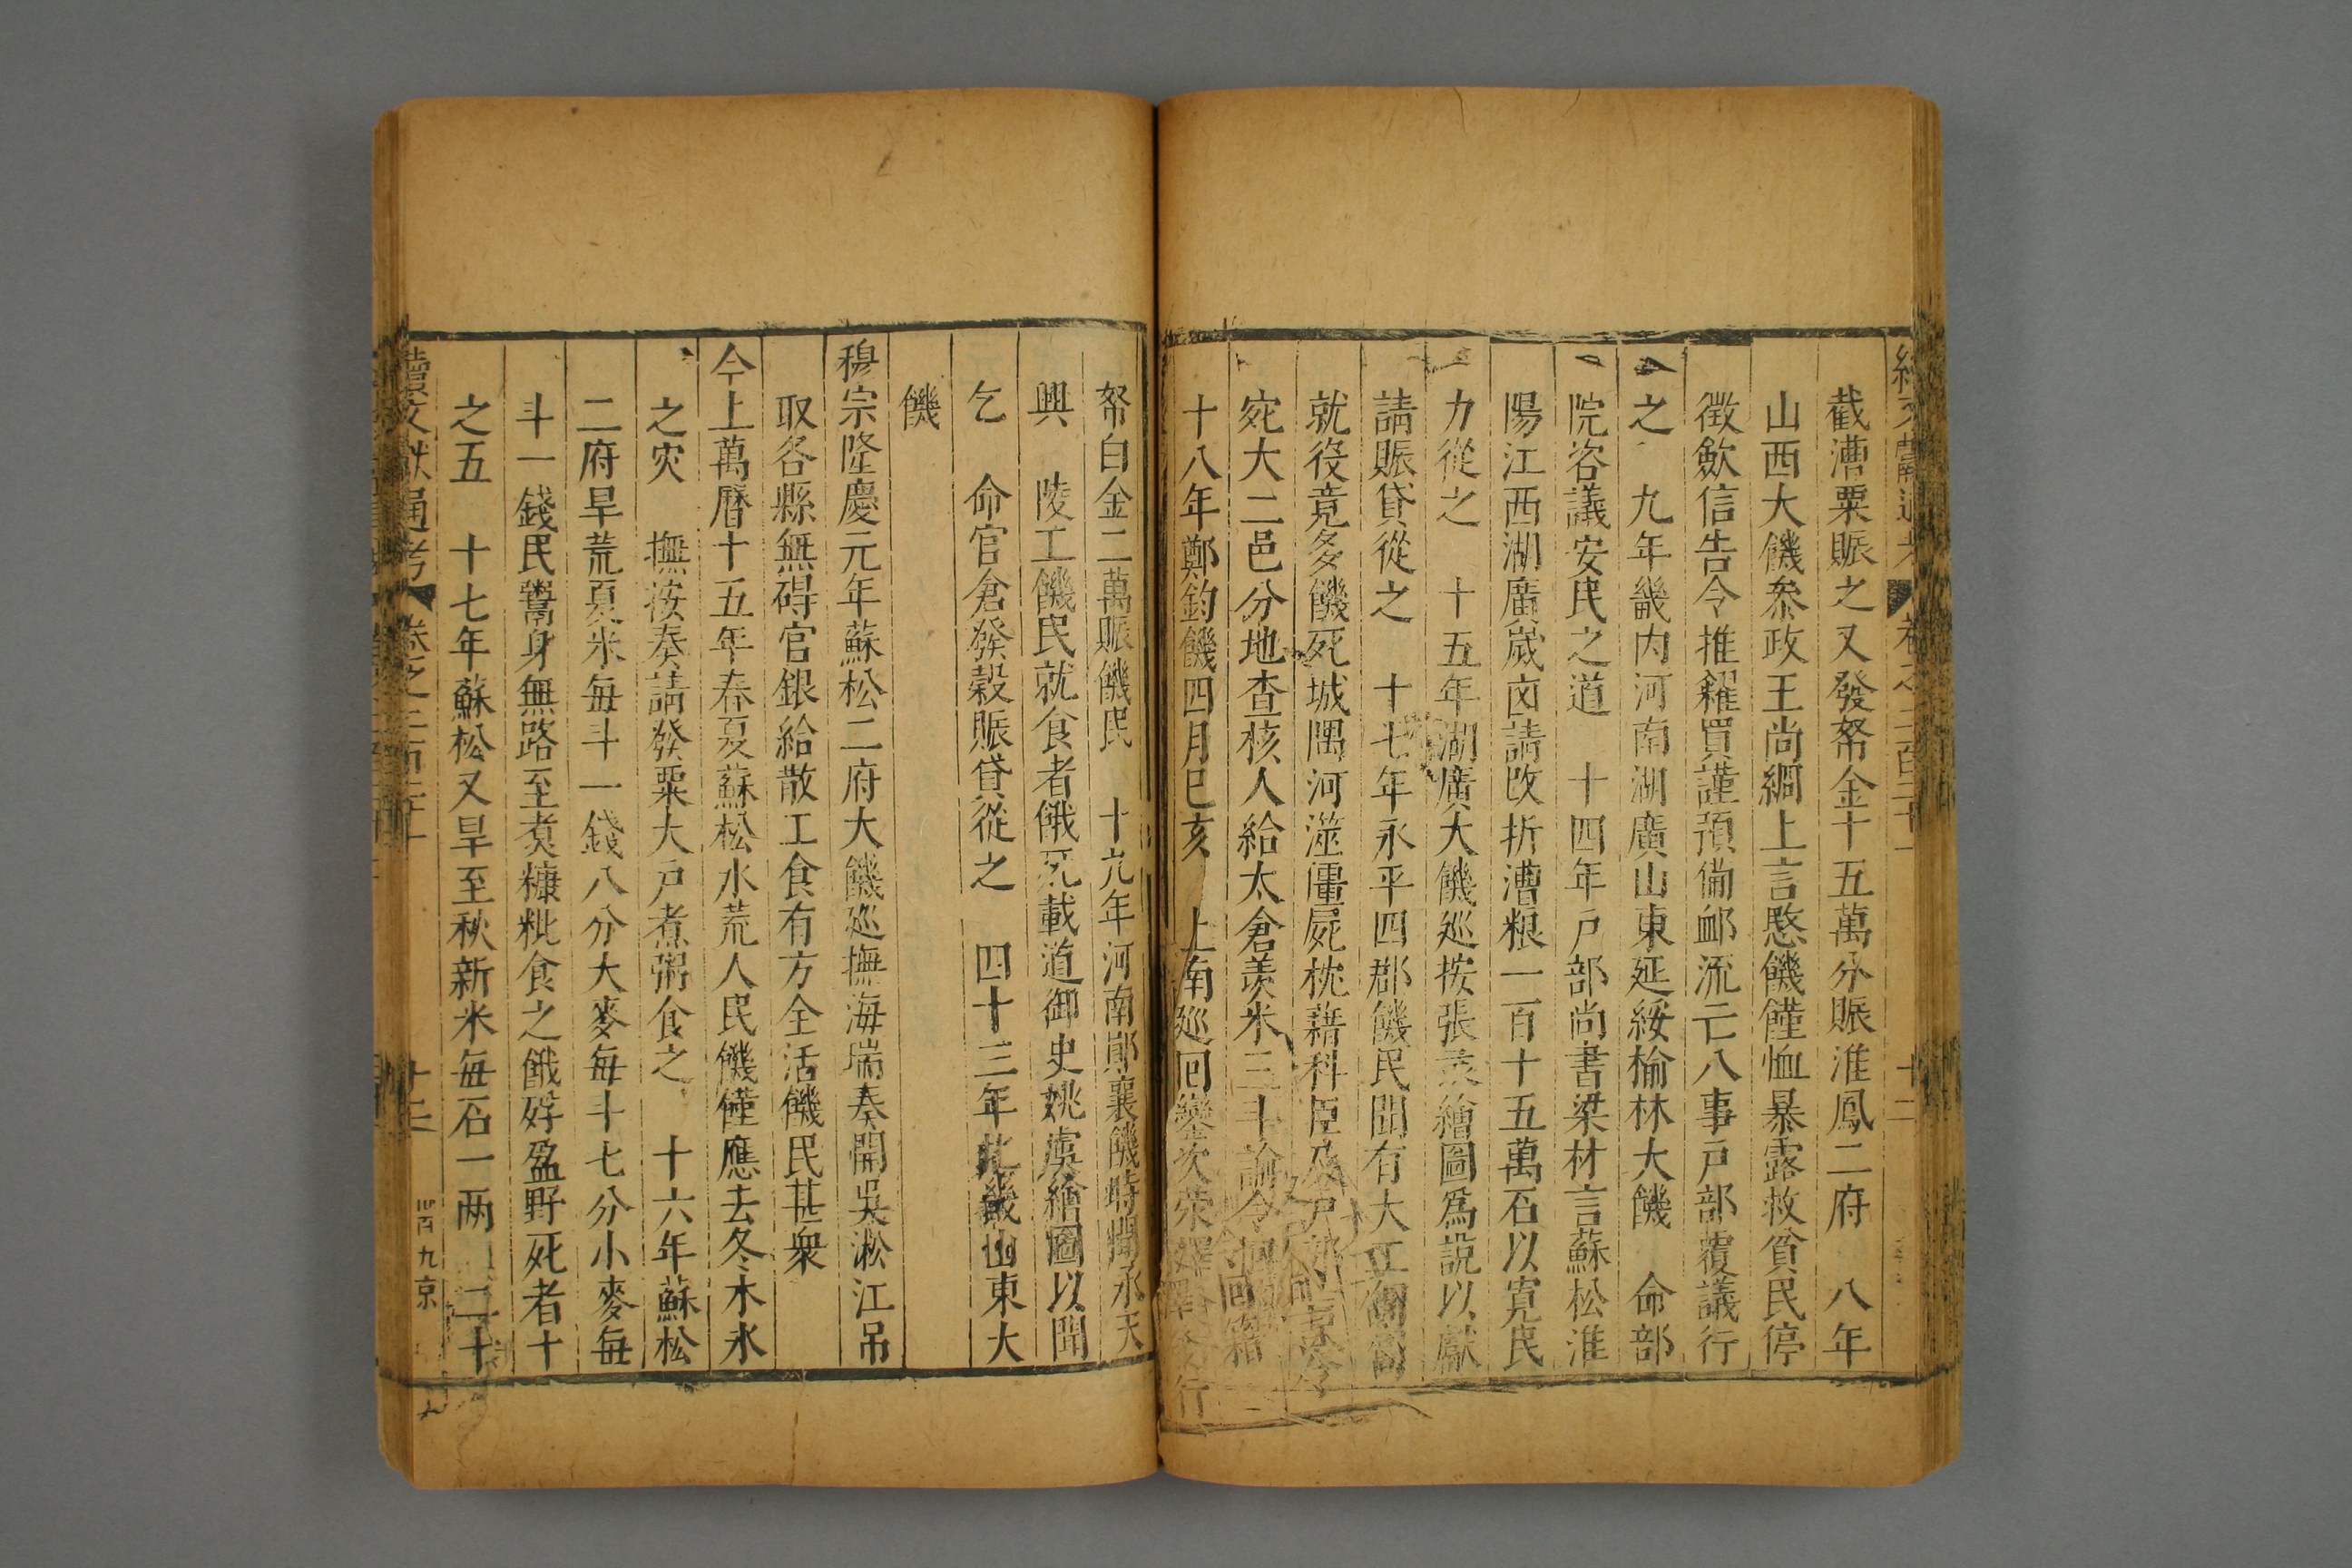 截漕粟賑之又發帑金十五萬分賑淮鳳二府　八年
山西大饑叅政王尚絅上言愍饑饉恤暴露救貧民停
徴歛信告令推糴買謹預備䘏流亡八事戸部覆議行
之　九年畿内河南湖廣山東延綏榆林大饑　命部
院咨議安民之道　十四年戸部尚書梁材言蘇松淮
陽江西湖廣嵗囟請改折漕粮一百十五萬石以寛民
力從之　十五年湖廣大饑巡按張繪圖爲説以獻
請賑貸從之　十七年永平四郡饑民聞有大工
就役竟多饑死城隅河溢僵屍枕藉科臣及戸部
宛大二邑分地查核人給太倉羨米三斗諭令回籍
十八年鄭鈞饑四月巳亥　上南廵回鑾次荣
帑白金二萬賑饑民　十九年河南鄖襄饑時聞承天
興　陵工饑民就食者餓死載道御史姚虞繪圖以聞
乞　命官倉發榖賑貸從之　四十三年北畿山東大
饑
穆宗隆慶元年蘇松二府大饑巡撫海瑞奏開吳淞江吊
取各縣無碍官銀給散工食有方全活饑民甚衆
今上萬曆十五年春夏蘇松水荒人民饑饉應去冬木氷
之灾　撫按奏請發粟大戸煮粥食之　十六年蘇松
二府旱荒夏米每斗一錢八分大麥每斗七分小麥每
斗一錢民鬻身無路至煑糠粃食之餓殍盈野死者十
之五　十七年蘇松又旱至秋新米每石一两　二十
續文獻通考　卷之三百三十　十三　四百九京